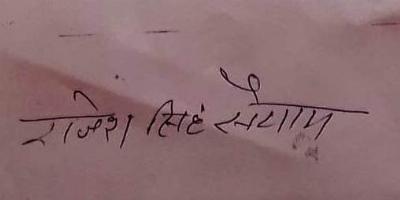 राजेश सिंह सैयाम